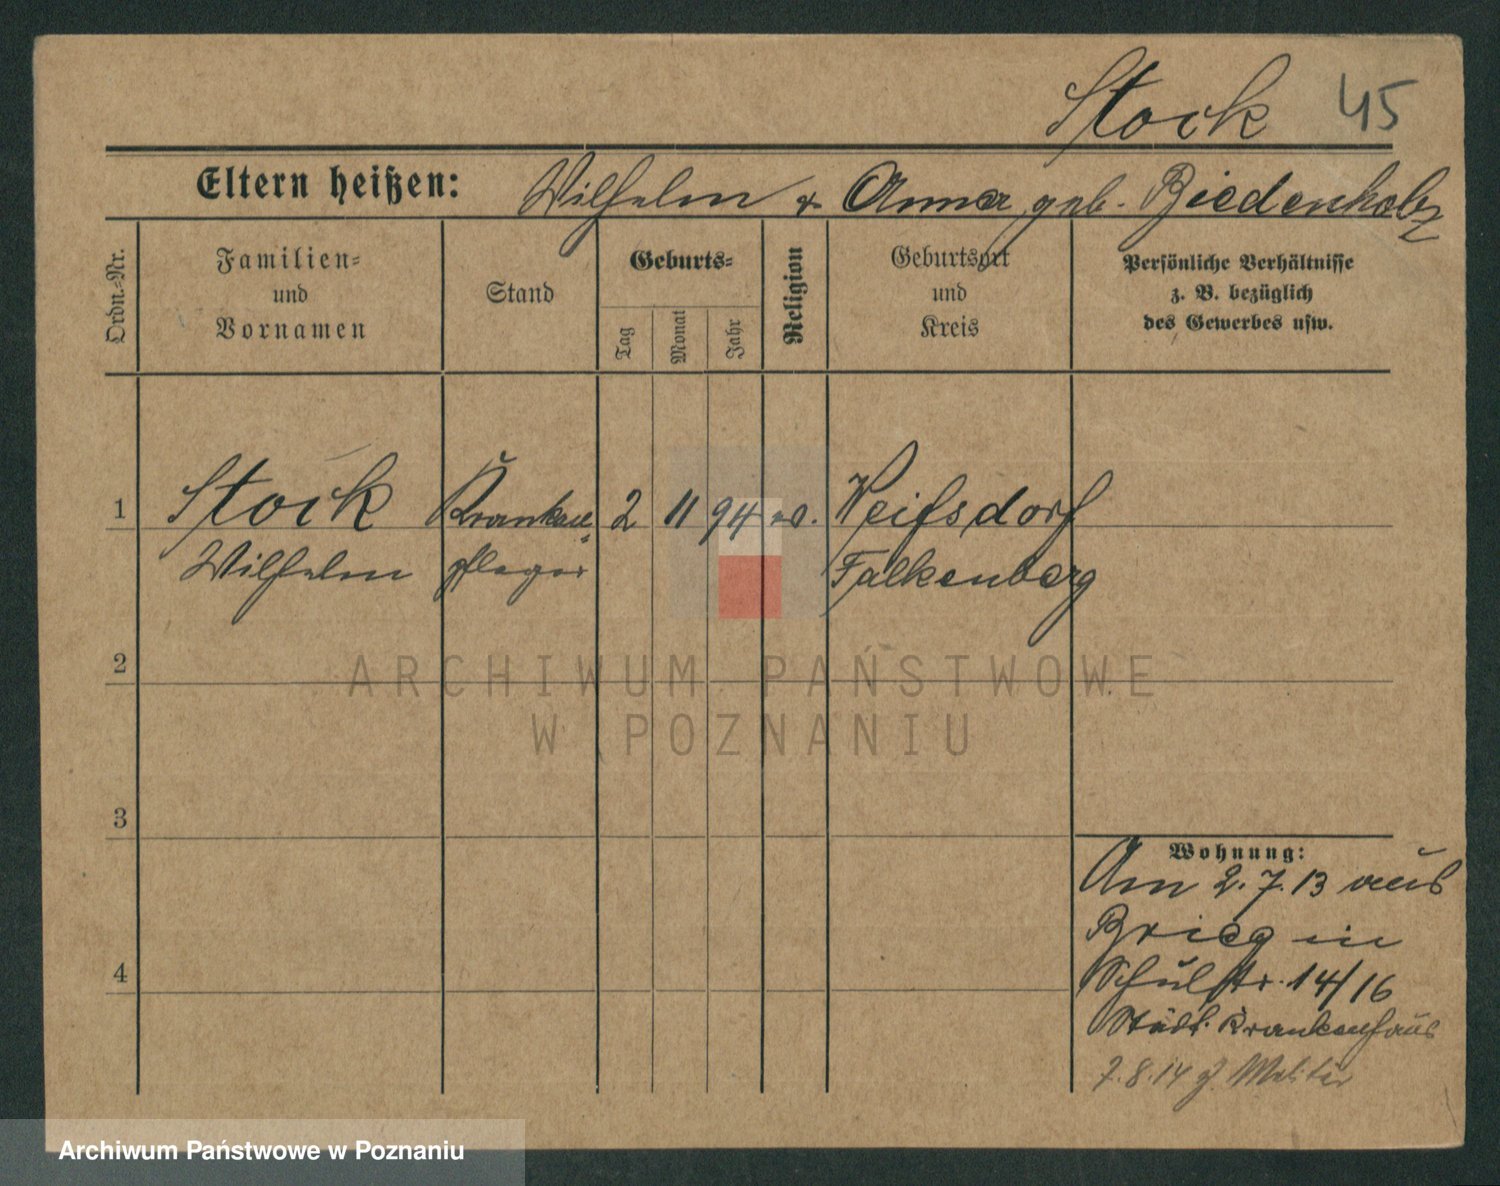 Stock 45
Eltern heißen: Wilhelm & Anna, geb. Biedenholz
Ordn.-Nr.
Familien-
und
Vornamen
Stand
Geburts-
Tag
Monat
Jahr
Religion
Geburtsort
und
Kreis
Persönliche Verhältnisse
z. B. bezüglich
des Gewerbes usw.
1 Stock Kranken- 2 11 94 ev. Weifsdorf
Wilhelm pfleger Falkenberg
2
3
4
Wohnung:
Am 2.7.13 aus
Brieg in
Schulstr. 14/16
Städt. Krankenhaus
7.8.14 z. Militär
ARCHIWUM PAŃSTWOWE
W POZNANIU
Archiwum Państwowe w Poznaniu